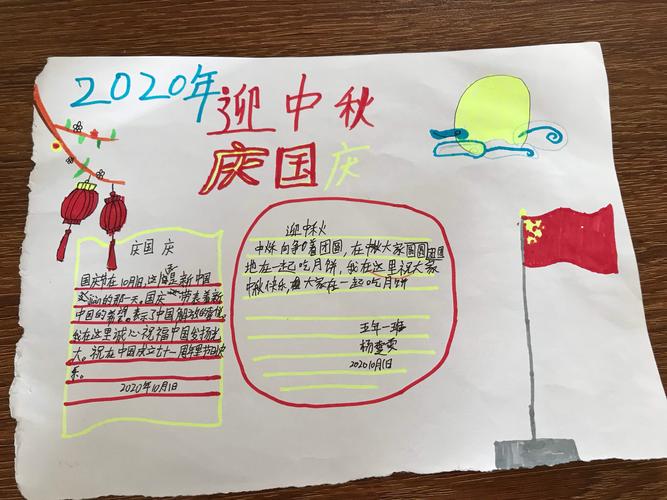 2020年
迎中秋
庆国庆
庆国庆
国庆节在10月1日这
新中国
的那一天。国庆 带表着新
中国的 表示了中国解放的
我在这里诚心祝福中国发扬光
大。祝在中国成立七十一周年里节日快
乐。
2020年10月1日
迎中秋
中秋向 着团圆，在中秋大家团圆
地在一起吃月饼，我在这里祝大家
中秋快乐， 大家在一起吃月饼
五年一班
杨雯雯
2020 10月1日